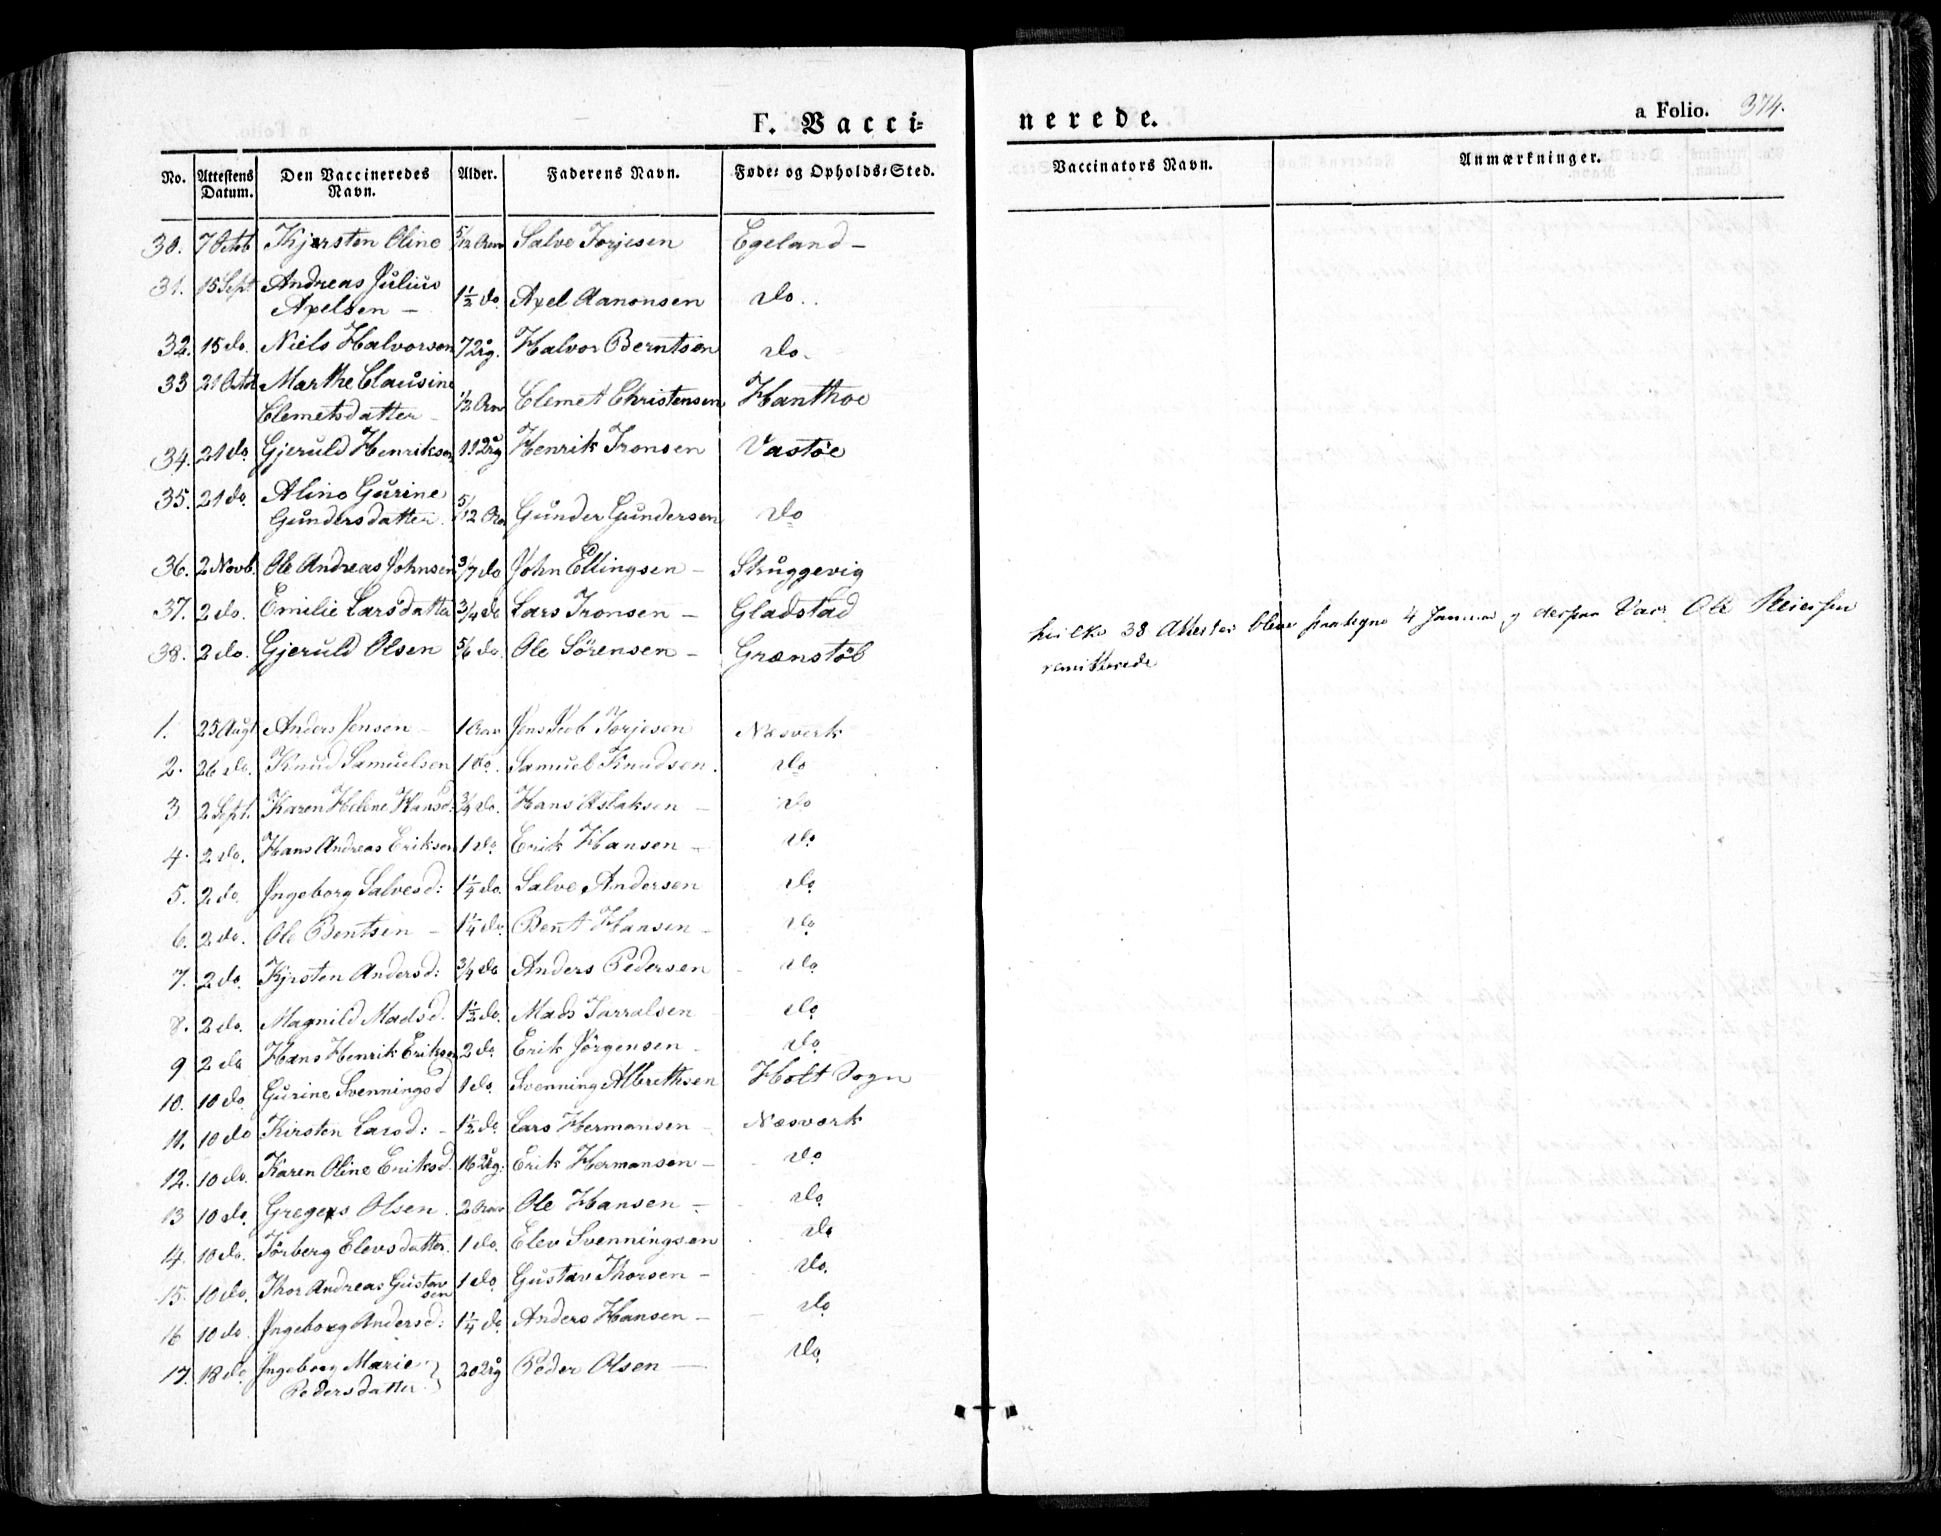 F. Vacci-
nerede.
a Folio. 374.
No. Attestens Datum. Den Vaccineredes Navn. Alder. Faderens Navn. Føde- og Opholds-Sted. Vaccinators Navn. Anmærkninger.
30. 7 Octob Kjersten Oline 5/12 Aar Salve Torjesen Egeland –
31. 15 Sept. Andreas Julius
Axelsen – 1½ do. Axel Aanonsen do.
32. 15 do. Niels Halvorsen 7 Aarg. Halvor Berntsen do.
33 21 Octob Marthe Clausine
Clemetsdatter – ½ Aar Clemet Christensen Hanthoe
34. 21 do. Gjeruld Henriksen 11 Aarg Henrik Tronsen Vastøe
35. 21 do. Aline Gurine
Gundersdatter. 5/12 Aar Gunder Gundersen do
36. 2 Novb. Ole Andreas Johnsen 3/7 do John Ellingsen – Skuggevig
37. 2 do. Emilie Larsdatter 3/4 do Lars Tronsen – Gladstad
38. 2 do. Gjeruld Olsen 5/6 do. Ole Sörensen – Grænstöb
hvilke 38 Attester bleve 4 Januar og derpaa Vacc. Ole Reiersen
remitterede
1. 25 Augt Anders Jensen – 1 Aar Jens Jacob Torjesen Næsverk
2. 26 do. Knud Samuelsen 1 do. Samuel Knudsen. do
3 2 Sept. Karen Helene Hansd: 3/4 do. Hans Aslaksen – do
4. 2 do. Hans Andreas Eriksen 1 do Erik Hansen – do
5. 2 do Ingeborg Salvesd: 1¼ do. Salve Andersen do
6. 2 do. Ole Bentsen – 1¼ do. Bent Hansen – do
7. 2 do. Kjrsten Andersd: 3/4 do Anders Pedersen do
8. 2 do. Magnild Madsd. 1½ do. Mads Tarralsen do
9 2 do Hans Henrik Eriksen 2 do. Erik Jörgensen – do
10. 10 do. Gurine Svenningsd 1 do. Svenning Albrethsen Holt Sogn
11. 10 do Kirsten Larsd: – 1½ do. Lars Hermansen – Næsverk
12. 10 do. Karen Oline Eriksd. 16 Aarg: Erik Hermansen – do
13 10 do. Gregers Olsen. 2 Aar Ole Hansen – do
14. 10 do. Törberg Elevsdatter. 1 do. Elev Svenningsen do
15. 10 do. Thor Andreas Gustav
sen 1 do. Gustav Thorsen – do.
16 10 do. Ingeborg Andersd: 1¼ do. Anders Hansen – do
17. 18 do. Ingeborg Marie
Pedersdatter. 20 Aarg Peder Olsen — do